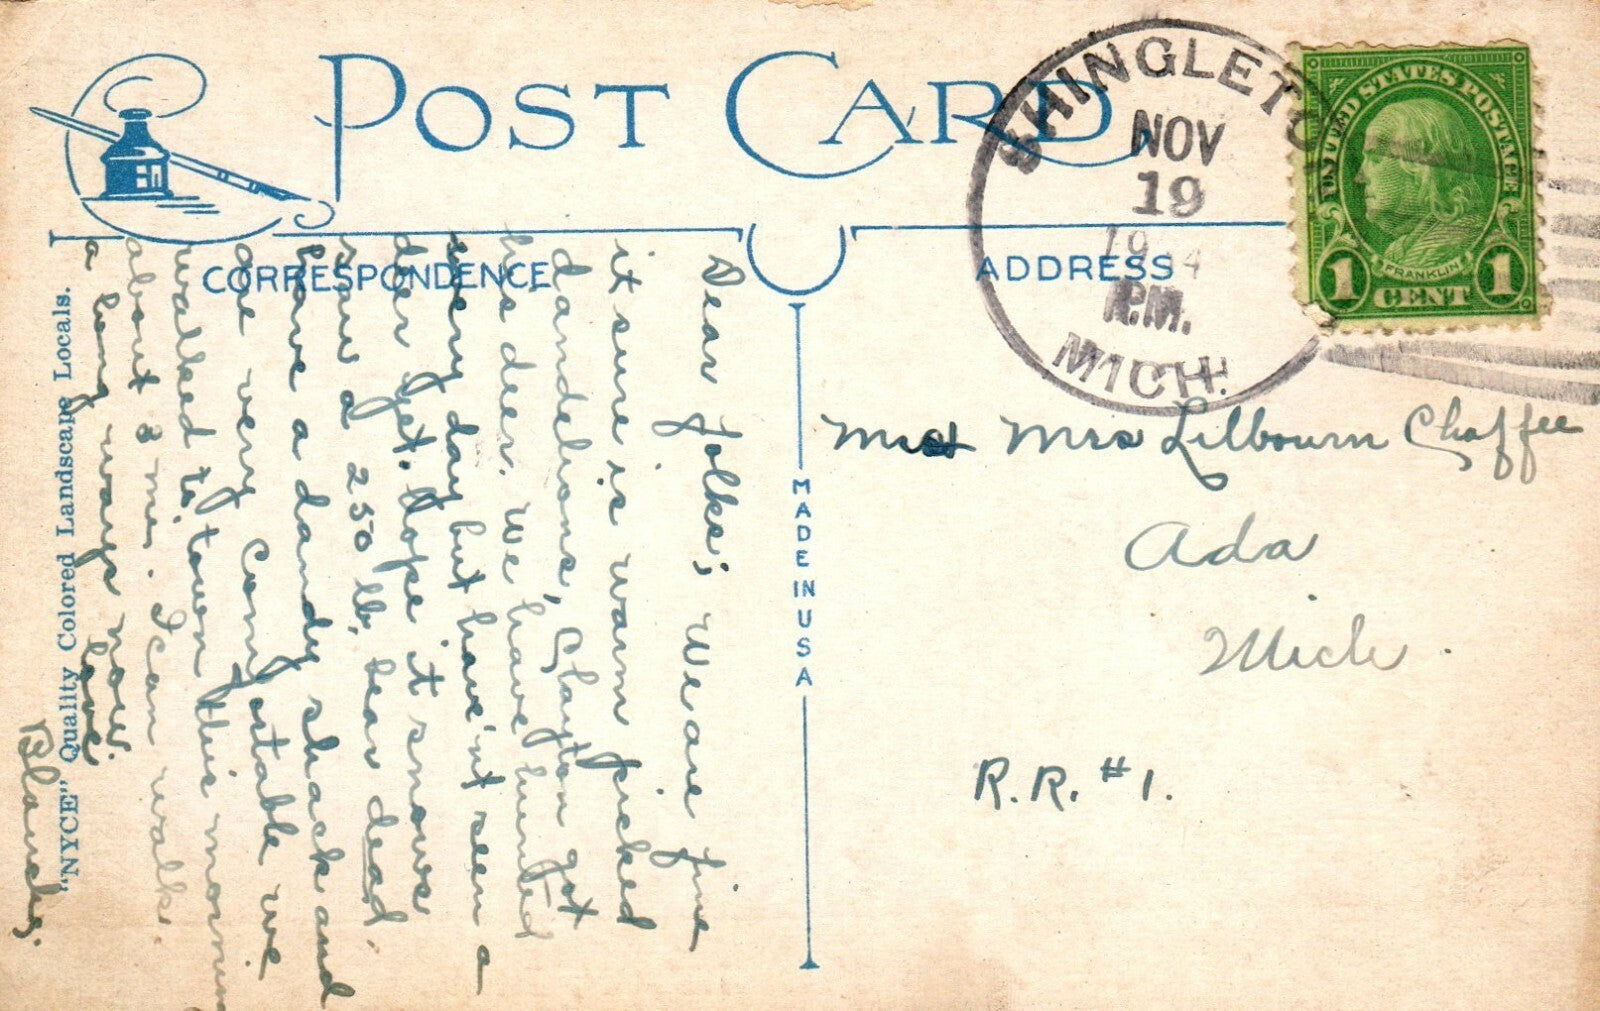 POST CARD
CORRESPONDENCE
ADDRESS
SHINGLETO
NOV
19
19 4
P.M.
MICH.
UNITED STATES POSTAGE
FRANKLIN
1 CENT 1
Dear folks; We are fine
it sure is warm picked
dandelions, Clayton got
his deer. We have hunted
every day but have'nt seen a
deer yet. Hope it snows
saw a 250 lb. bear dead.
have a dandy shack and
are very comfortable we
walked to town this morning
about 3 mi. I can walk
a long ways now.
love
Blanche.
Mrs Lilbourn Chaffee
Ada
Mich.
R.R. #1.
MADE IN USA
"NYCE" Quality Colored Landscape Locals.